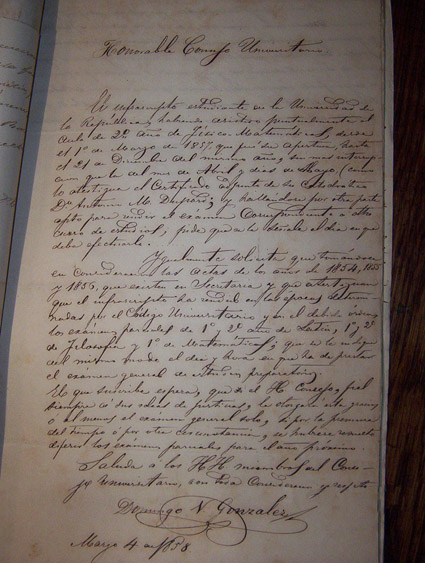 Honorable Consejo Universitario.
El infrascripto estudiante en la Universidad de
la República, habiendo asistido puntualmente al
Aula de 2º año de Físico-Matematicas, desde
el 1º de Marzo de 1857 que fué su apertura, hasta
el 21 de Diciembre del mismo año, sin mas interrup
cion que la del mes de Abril y dias de Mayo (como
lo atestigua el Certificado adjunto de su Catedratico
Dn Antonio M. ; y hallandose por otra parte
apto para rendir el exámen correspondiente a dho
curso de estudios, pide que se le señale el dia en que
deba efectuarlo.
Igualmente solicita que tomandose
en consideracion las actas de los años de 1854, 1855
y 1856, que existen en Secretaria y que atestiguan
que el infrascripto ha rendido en las épocas determi
nadas por el Código Universitario y en el debido órden
los exámenes parciales de 1º y 2º año de Latin, 1º y 2º
de Filosofia y 1º de Matematicas; que se le indique
del mismo modo el dia y hora en que ha de prestar
el exámen general de estudios preparatorios.
El que suscribe espera, que el H. Consejo fiel
siempre á sus ideas de justicia, le otorgará esta gracia
ó al menos el exámen general solo, si por la premura
del tiempo ó por otra circunstancia, se hubiere resuelto
diferir los exámenes parciales para el año proximo.
Saluda á los HH miembros del Conse-
jo Universitario, con toda consideracion y respeto
Domingo N Gonzalez
Marzo 4 de 1858